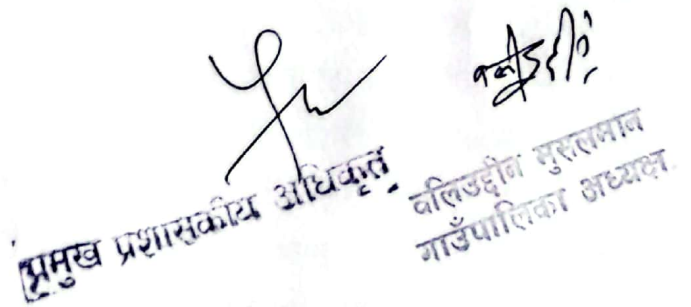 प्रमुख प्रशासकीय अधिकृत
वलिउद्दीन मुसलमान
गाउँपालिका अध्यक्ष